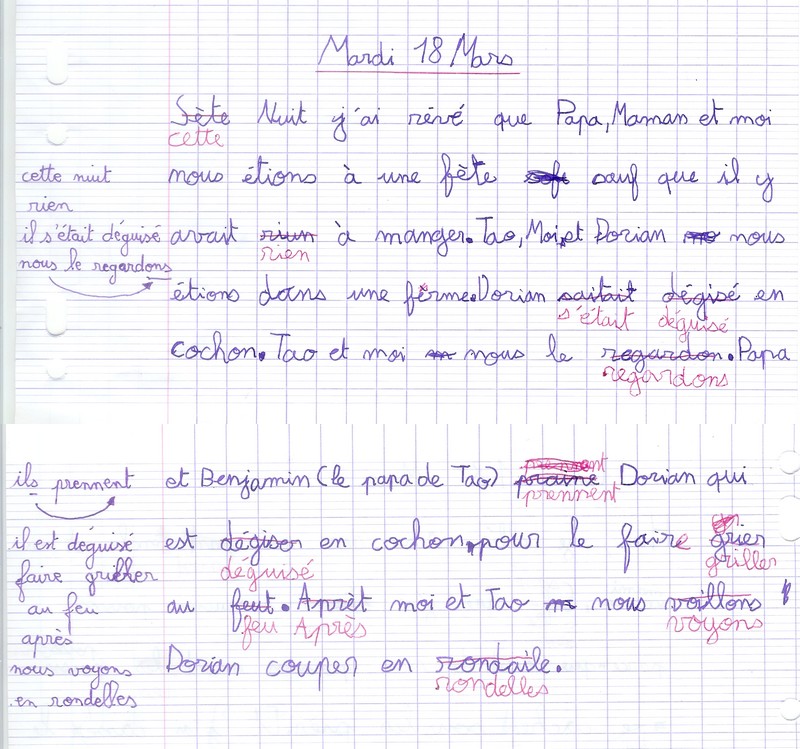 Mardi 18 Mars
Sète Nuit j'ai rêvé que Papa, Maman et moi
cette
cette nuit
nous étions à une fête sauf que il y
rien
il s'était déguisé
avait riun à manger. Tao, Moi, et Dorian nous
rien
nous le regardons
étions dans une ferme. Dorian saitait dégisé en
s'était déguisé
cochon. Tao et moi nous le regardon. Papa
regardons
ils prennent
et Benjamin (le papa de Tao) Dorian qui
prennent
il est déguisé
est dégiser en cochon, pour le faire grier
faire griller
déguisé griller
au feu
au feut. Aprèt moi et Tao nous voillons
feu Après voyons
après
nous voyons
Dorian couper en rondaile.
rondelles
en rondelles